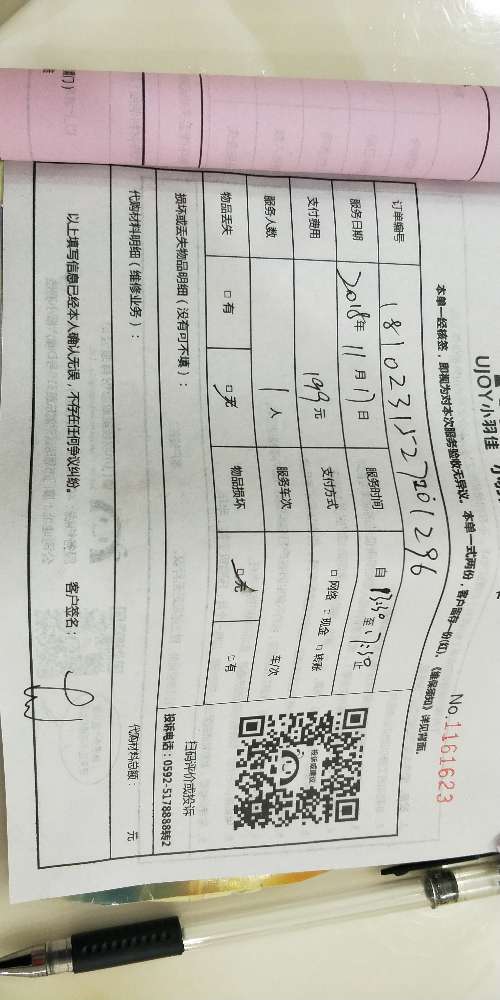 UJOY小羽佳
No.1161623
本单一经核签，即视为对本次服务验收无异议。本单一式两份，客户留存一份(红)，《维保须知》详见背面。
订单编号 181023152701296
服务日期 2018年 11月 17日 服务时间 自 13:30 至 17:30 止
支付费用 199元 支付方式 □ 网络 □ 现金 □ 转账
服务人数 1人 服务车次 车/次
物品丢失 □ 有 □ 无 物品损坏 □ 无 □ 有
损坏或丢失物品明细（没有可不填）：
扫码评价或投诉
投诉电话：0592-5178888转2
代购材料明细（维修业务）：
代购材料总额： 元
以上填写信息已经本人确认无误，不存在任何争议纠纷。 客户签名：